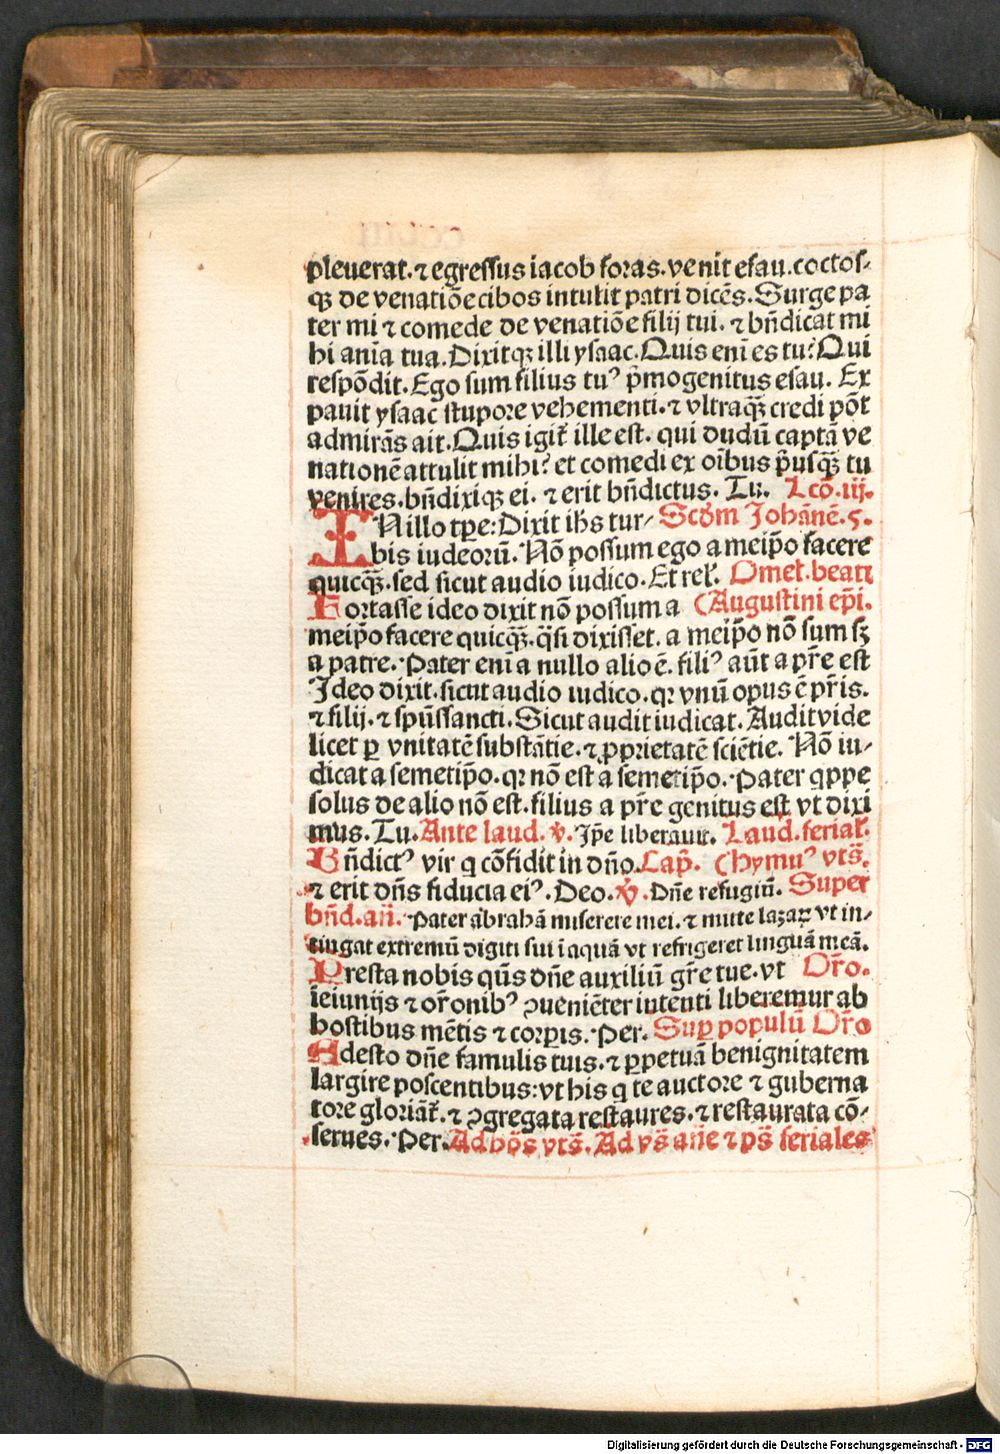 pleuerat. ⁊ egressus iacob foras. venit esau. coctos-
qꝫ de venatiōe cibos intulit patri dicēs. Surge pa
ter mi ⁊ comede de venatiōe filij tui. ⁊ bn̄dicat mi
hi anīa tua. Dixitqꝫ illi ysaac. Quis enī es tu? Qui
respōdit. Ego sum filius tuꝰ p̄mogenitus esau. Ex
pauit ysaac stupore vehementi. ⁊ vltraqꝫ̄ credi pōt
admirās ait. Quis igit̄ ille est. qui dudū captā ve
nationē attulit mihi? et comedi ex oībus p̄usqꝫ̄ tu
venires. bn̄dixiqꝫ ei. ⁊ erit bn̄dictus. Tu. Lcō. iij.
IN illo tꝑe: Dixit ihs tur- Scd̄m Johānē. 5.
bis iudeorū. Nō possum ego a meip̄o facere
quicqꝫ̄. sed sicut audio iudico. Et rel̄. Omel. beati
Fortasse ideo dixit nō possum a (Augustini ep̄i.
meip̄o facere quicqꝫ̄. q̄si dixisset. a meip̄o nō sum sꝫ
a patre. Pater enī a nullo alio ē. filiꝰ aūt a pr̄e est
Ideo dixit. sicut audio iudico. qꝛ vnū opus ē pr̄is.
⁊ filij. ⁊ spūssancti. Sicut audit iudicat. Audit vide
licet ꝑ vnitatē substātie. ⁊ ꝓprietatē sciētie. Nō iu-
dicat a semetip̄o. qꝛ nō est a semetip̄o. Pater qppe
solus de alio nō est. filius a pr̄e genitus est vt dixi
mus. Tu. Ante laud. v̄. Ip̄e liberauit. Laud. ferial̄.
Bn̄dictꝰ vir q cōfidit in dn̄o. Cap̄. (hymuꝰ vts̄.
⁊ erit dn̄s fiducia eiꝰ. Deo. v̄. Dn̄e refugiū. Super
bn̄d. an̄. Pater abrahā miserere mei. ⁊ mitte lazaꝝ vt in-
tingat extremū digiti sui ī aquā vt refrigeret linguā meā.
Presta nobis qūs dn̄e auxiliū gr̄e tue. vt Or̄o.
ieiunijs ⁊ or̄onibꝰ ꝯueniēter intenti liberemur ab
hostibus mētis ⁊ corꝑis. Per. Suꝑ populū Or̄o
Adesto dn̄e famulis tuis. ⁊ ꝑpetuā benignitatem
largire poscentibus: vt his q te auctore ⁊ guberna
tore gloriāt̄. ⁊ ꝯgregata restaures. ⁊ restaurata cō-
serues. Per. Ad hōs vts̄. Ad vs̄ an̄e ⁊ ps̄ feriales
Digitalisierung gefördert durch die Deutsche Forschungsgemeinschaft - DFG